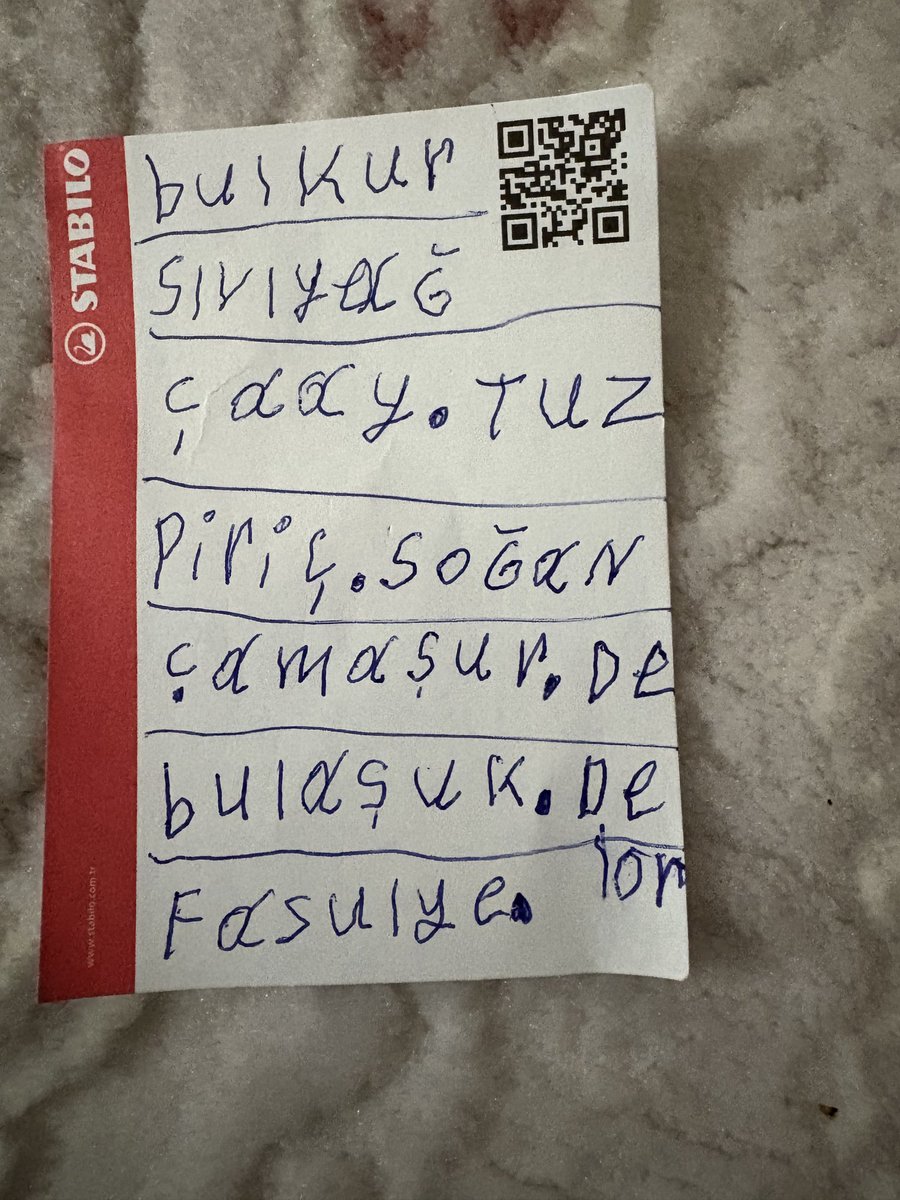 STABILO
www.stabilo.com.tr
bulkur
SIVIYAĞ
çaay. TUZ
Piriç. SOĞAN
çamaşur. De
bulaşuk. De
Fasulye.